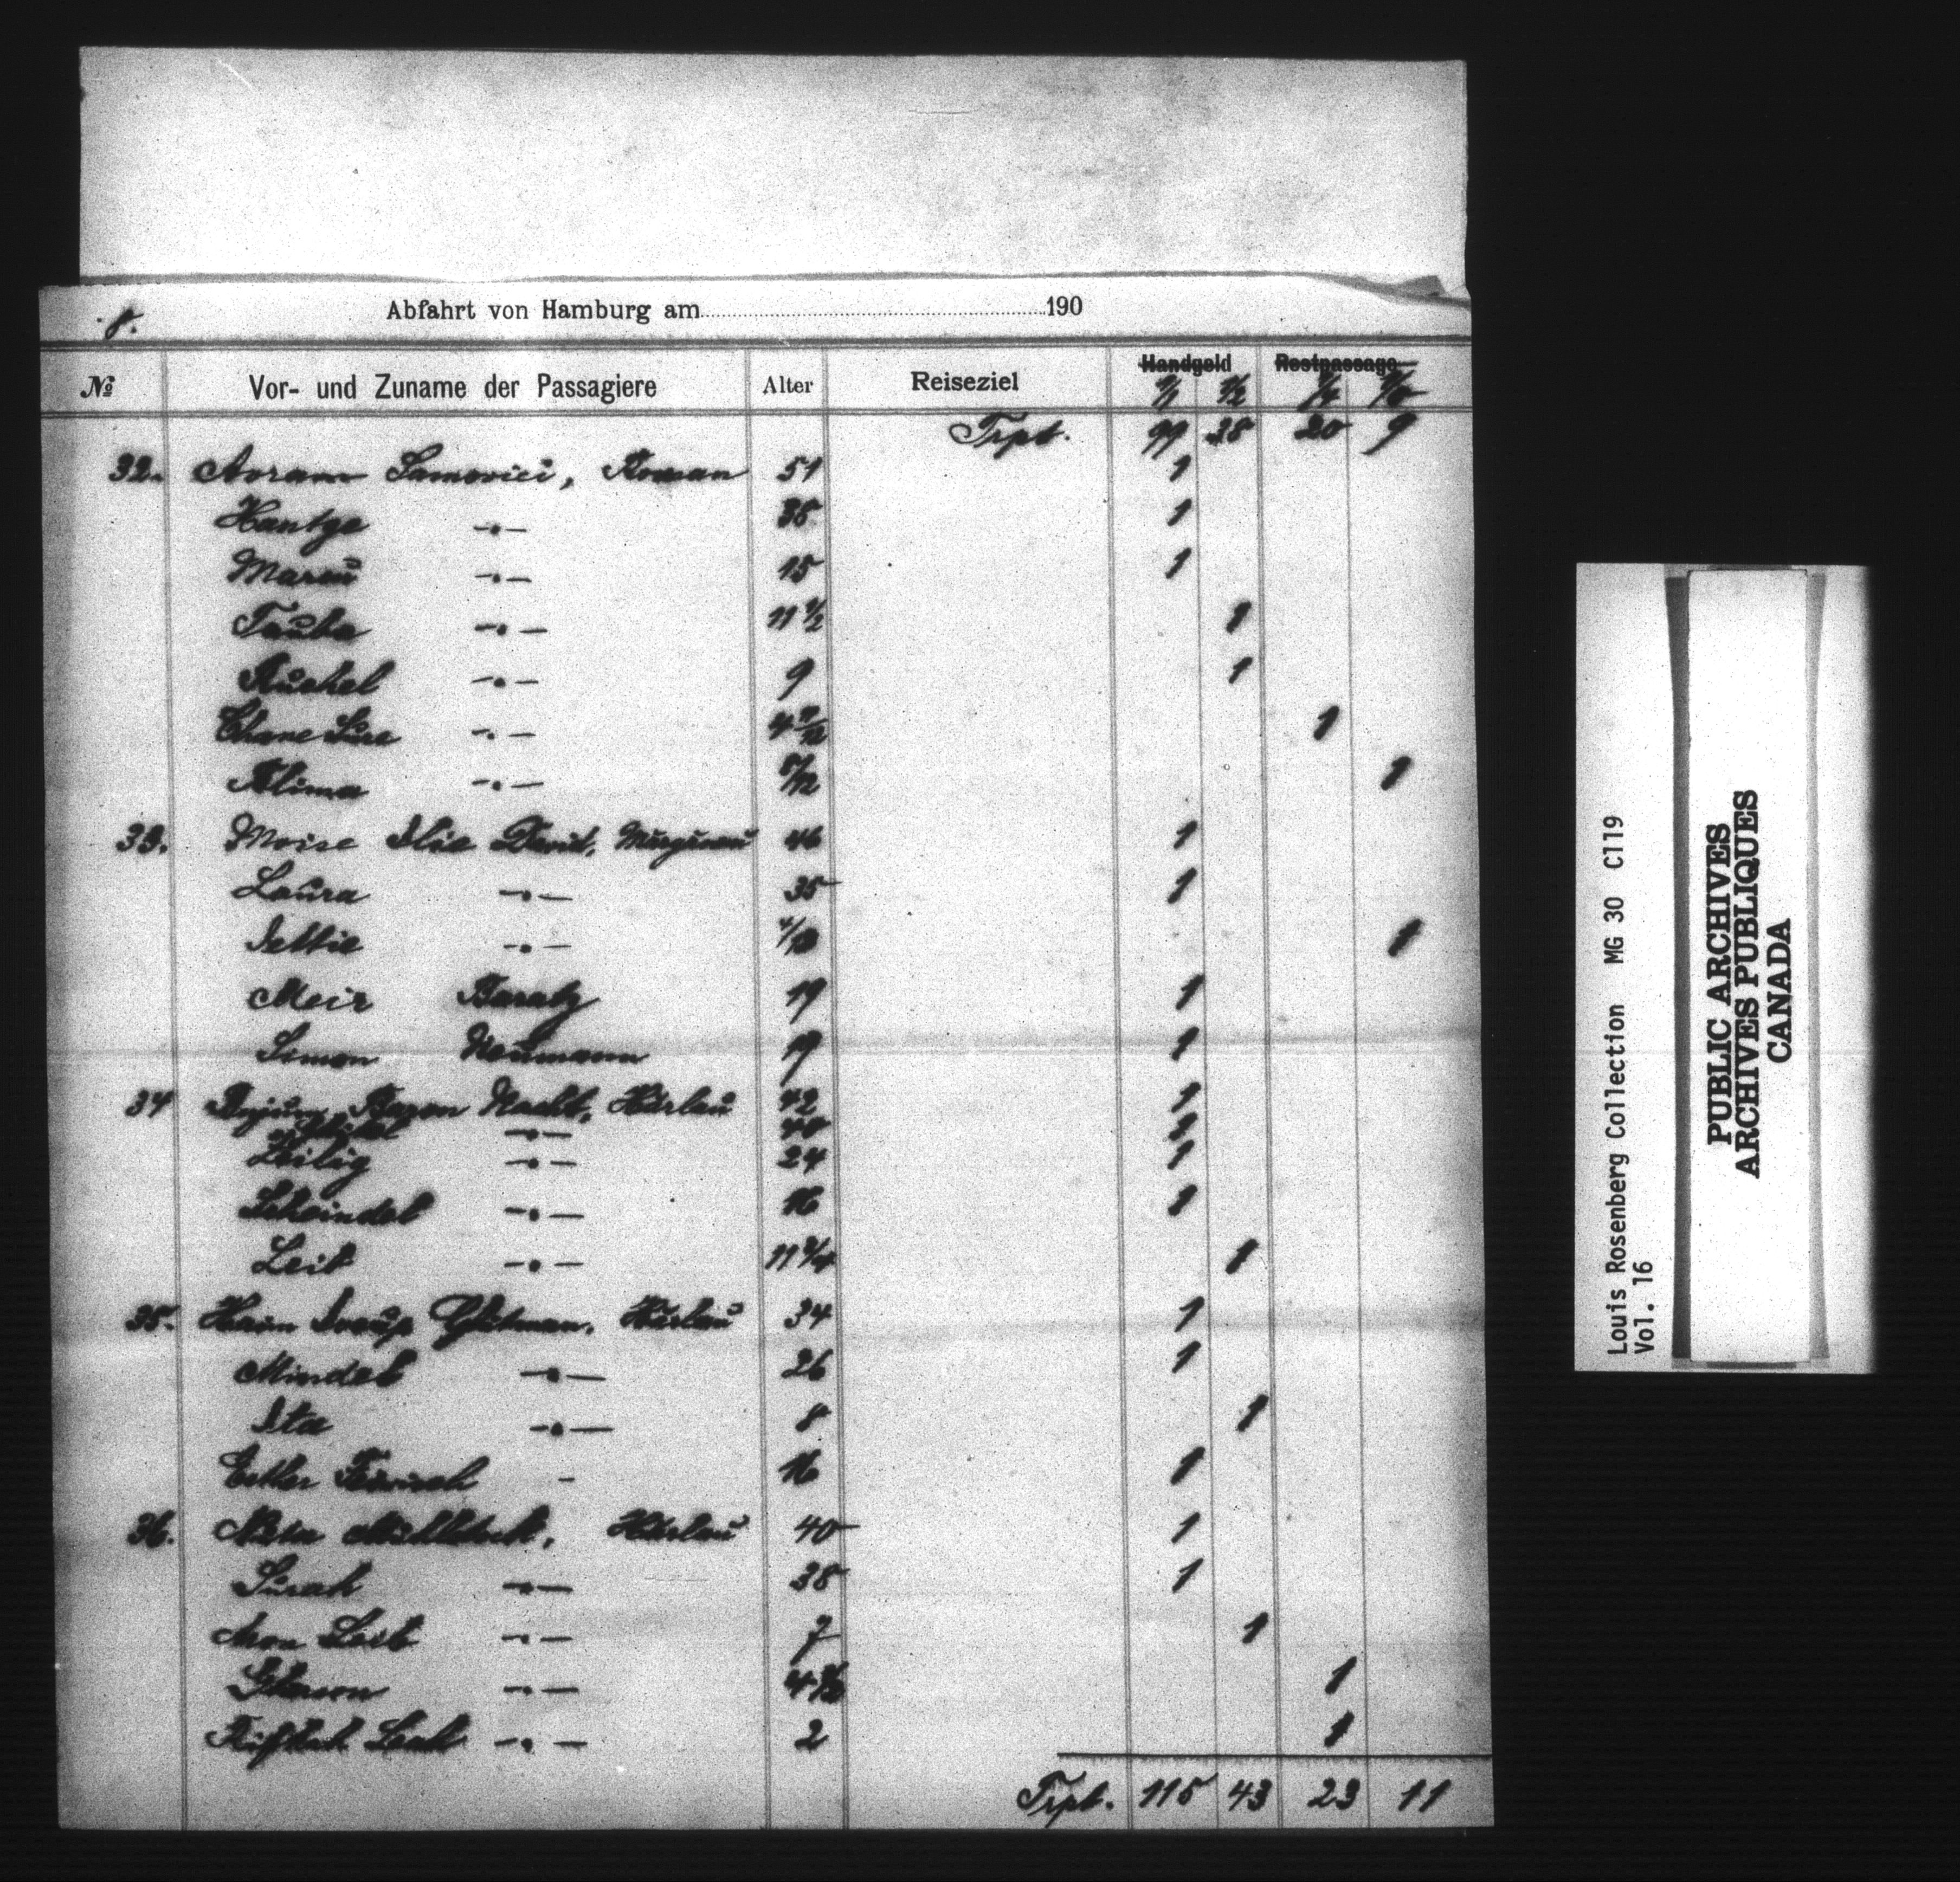 8.
Abfahrt von Hamburg am 190
№ Vor- und Zuname der Passagiere Alter Reiseziel Handgeld Restpassage
1/1 1/2 1/4
Trpt. 99 38 20 9
32. Avram Samovici, Roman 51 1
Hantze -"- 38 1
Marcu -"- 15 1
Tauba -"- 11 1/2 1
Ruchel -"- 9 1
Chane Sure -"- 4 1
Blima -"- 1
33. Moise Ilie David, 46 1
Laura -"- 35 1
Nettie -"- 1
Meir Baratz 19 1
Simon Neumann 19 1
34 Nacht, Hürlau 42 1
-"- 40 1
Zeilig -"- 24 1
Scheindel -"- 16 1
Leib -"- 11 3/4 1
35. Haim Gutman, Hürlau 34 1
Mindel -"- 26 1
Ita -"- 8 1
Esther - 16 1
36. Hürlau 40 1
Surah -"- 38 1
Aron Leib -"- 7 1
-"- 4 1
Leah -"- 2 1
Trpt. 115 43 23 11
Louis Rosenberg Collection MG 30 C119
Vol. 16
PUBLIC ARCHIVES
ARCHIVES PUBLIQUES
CANADA